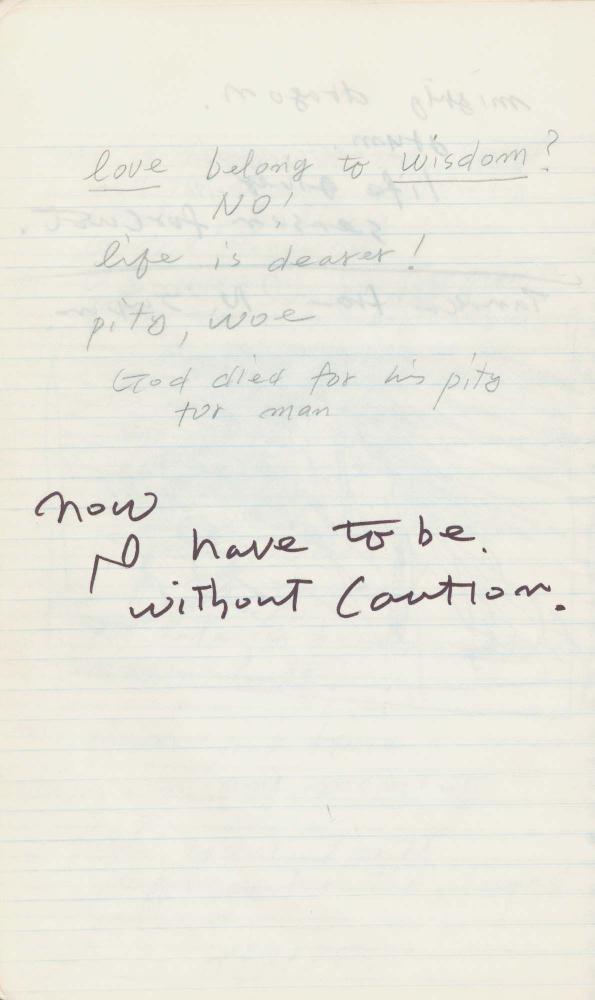 love belong to wisdom?
NO!
life is dearer!
pity, woe
God died for his pity
for man
now
I have to be.
without Caution.